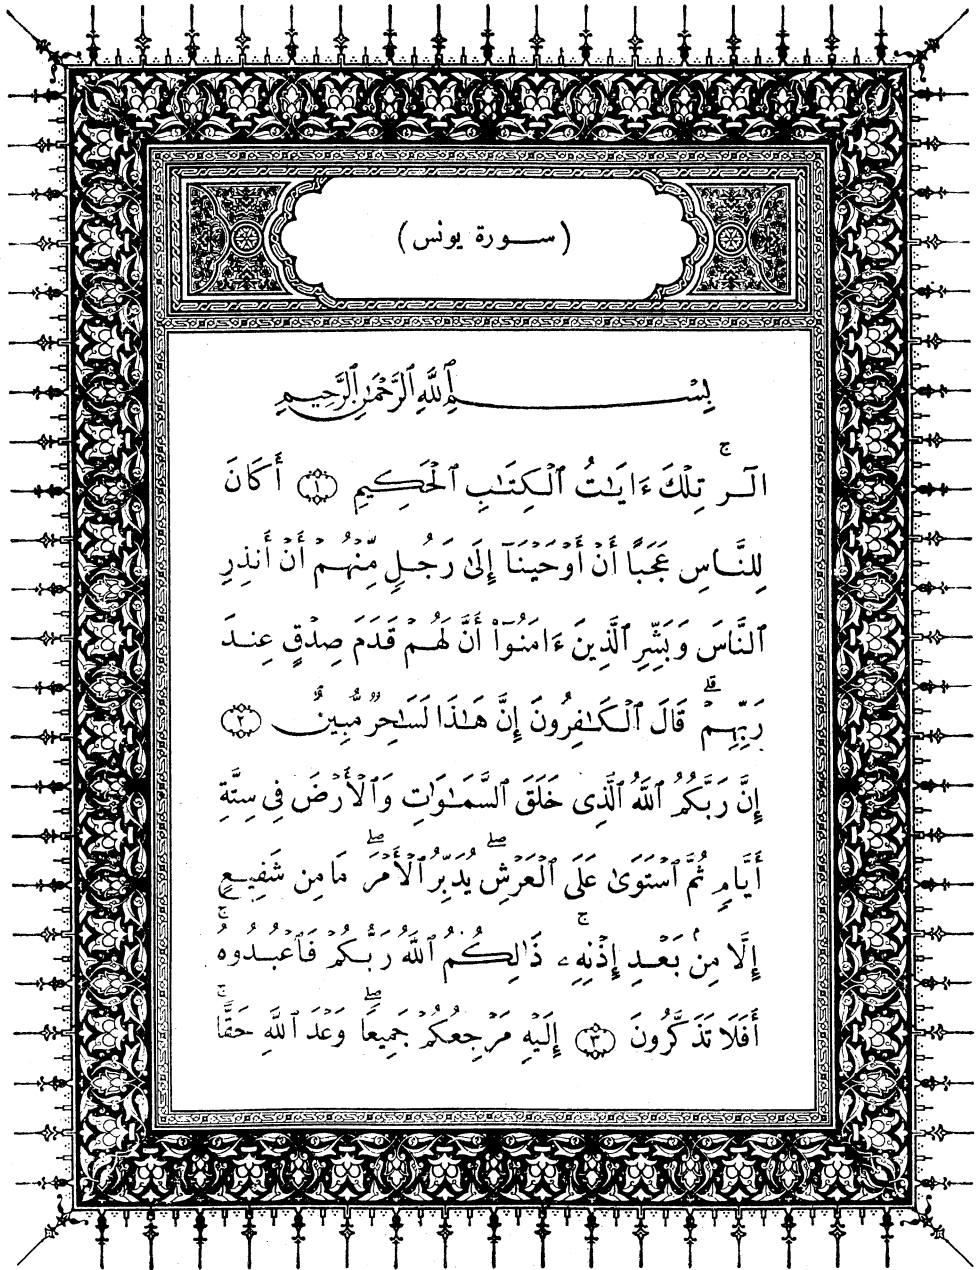 (سورة يونس)
بِسْمِ ٱللَّهِ ٱلرَّحْمَٰنِ ٱلرَّحِيمِ
الٓرۚ تِلْكَ ءَايَٰتُ ٱلْكِتَٰبِ ٱلْحَكِيمِ ١ أَكَانَ
لِلنَّاسِ عَجَبًا أَنْ أَوْحَيْنَآ إِلَىٰ رَجُلٍ مِّنْهُمْ أَنْ أَنذِرِ
ٱلنَّاسَ وَبَشِّرِ ٱلَّذِينَ ءَامَنُوٓا۟ أَنَّ لَهُمْ قَدَمَ صِدْقٍ عِندَ
رَبِّهِمْۗ قَالَ ٱلْكَٰفِرُونَ إِنَّ هَٰذَا لَسَٰحِرٌ مُّبِينٌ ٢
إِنَّ رَبَّكُمُ ٱللَّهُ ٱلَّذِى خَلَقَ ٱلسَّمَٰوَٰتِ وَٱلْأَرْضَ فِى سِتَّةِ
أَيَّامٍ ثُمَّ ٱسْتَوَىٰ عَلَى ٱلْعَرْشِۖ يُدَبِّرُ ٱلْأَمْرَۖ مَا مِن شَفِيعٍ
إِلَّا مِنۢ بَعْدِ إِذْنِهِۦۚ ذَٰلِكُمُ ٱللَّهُ رَبُّكُمْ فَٱعْبُدُوهُۚ
أَفَلَا تَذَكَّرُونَ ٣ إِلَيْهِ مَرْجِعُكُمْ جَمِيعًاۖ وَعْدَ ٱللَّهِ حَقًّاۚ